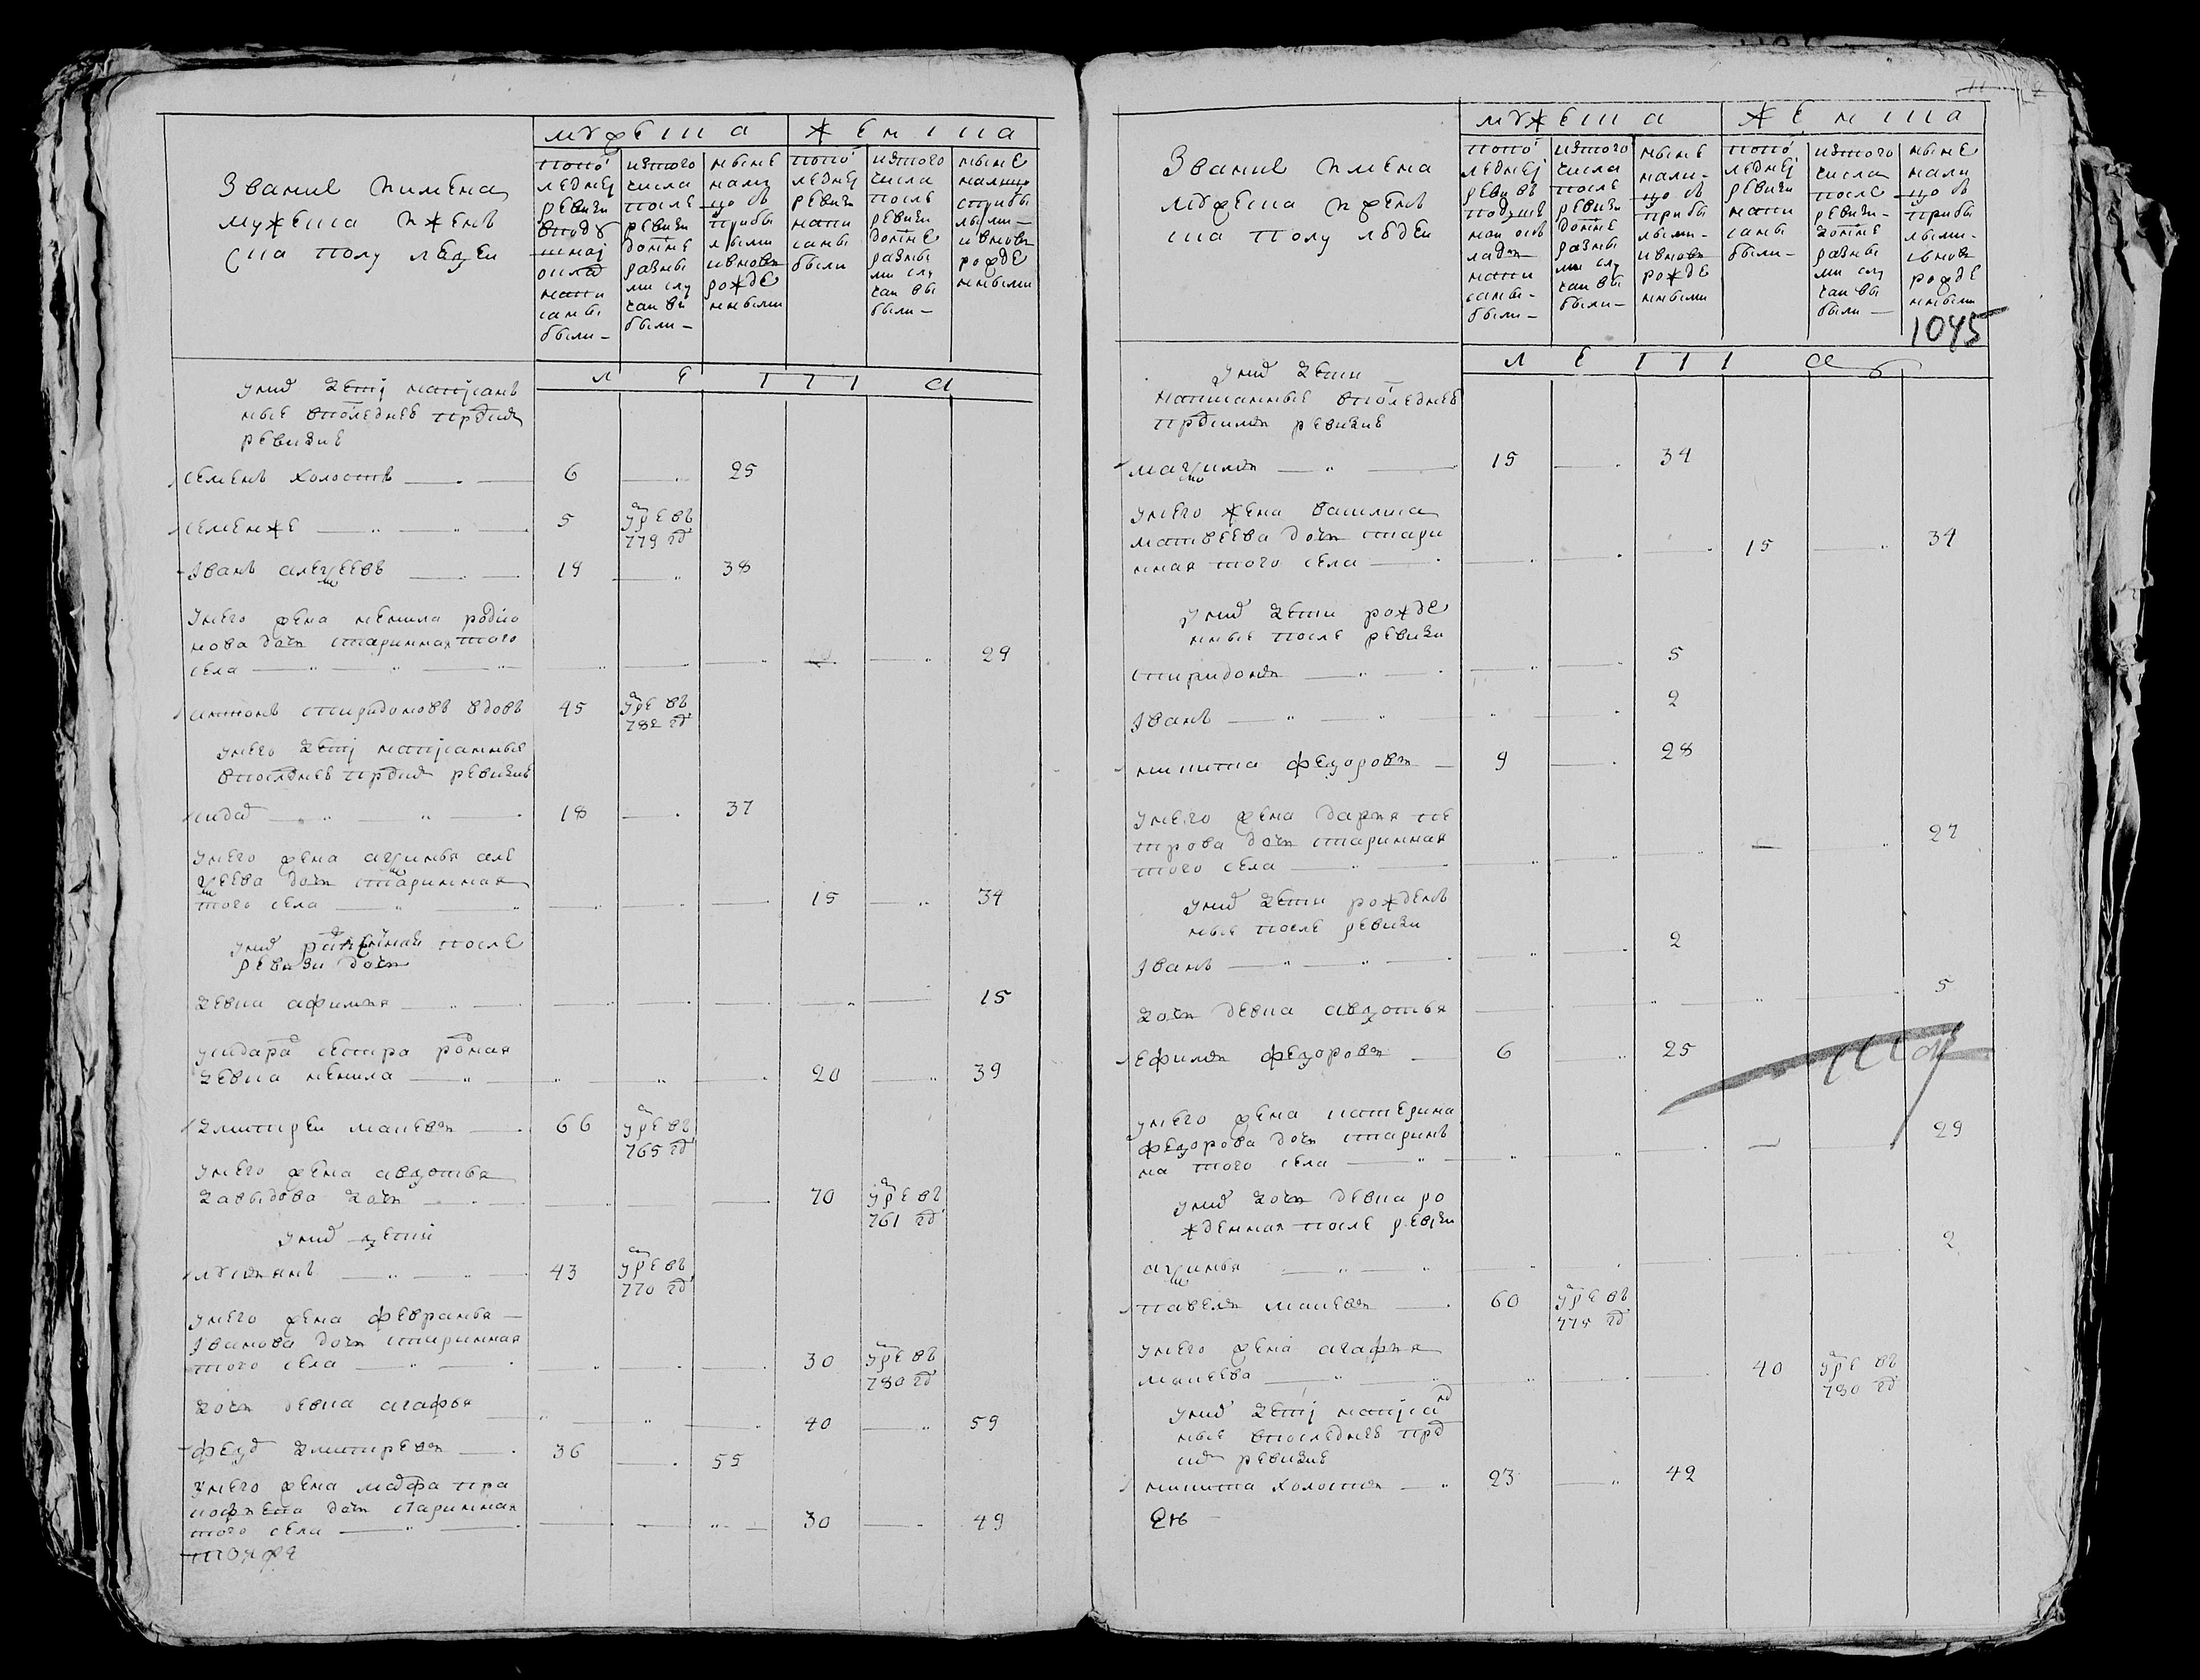 Звание и имена
мужеска и женъ
ска полу людеи
мужеска
женска
по по
следнеи
ревизи
в поду
шнои
оклад
напи
саны
были
изтого
числа
после
ревизи
до ние
разны
ми слу
чаи вы
были
ныне
нали
цо съ
прибы
лыми
и вновь
рожде
нными
по по
следнеи
ревизи
напи
саны
были
изтого
числа
после
ревизи
до ние
разны
ми слу
чаи вы
были
ныне
налицо
с прибы
лыми
и вновь
рожде
нными
лета
у них дети написанъ
ные в последнеи пред сим
ревизие
семенъ холостъ 6 25
семенже 5 умре въ
779 год
Iванъ алексеевъ 19 38
у него жена ненила родио
нова дочь старинная того
села 29
антонъ спиридоновъ вдовъ 45 умре въ
782 год
у него дети написанные
в последнеи пред сим ревизие
сидор 18 37
у него жена аксинья але
ксеева дочь старинная
того села 15 34
у них рожденная после
ревизи дочь
девка афимья 15
у сидора сестра родная
девка ненила 20 39
дмитреи макеевъ 66 умре въ
765 год
у него жена авдотья
давыдова дочь 70 умре въ
761 год
у них дети
лукьянъ 43 умре въ
770 год
у него жена февранья
Iванова дочь старинная
того села 30 умре въ
780 год
дочь девка агафья 40 59
федор дмитреевъ 36 55
у него жена марфа про
кофьева дочь старинная
того села 30 49
Звание и имена
мужеска и женъ
ска полу людеи
мужеска
женска
по по
следнеи
реви въ
подуш
ном окъ
ладе
напи
саны
были
изтого
числа
после
ревизи
до ние
разны
ми слу
чаи вы
были
ныне
нали
цо съ
прибы
лыми
и вновь
рожде
нными
по по
следнеи
ревизи
напи
саны
были
изтого
числа
после
ревизи
до ние
разны
ми слу
чаи вы
были
ныне
нали
цо съ
прибы
лыми
и вновь
рожде
нными
1045
лета
у них дети
написанные в последнеи
пред сим ревизие
максимъ 15 34
у него жена василиса
матвеева дочь стари
нная того села 15 34
у них дети рожде
нные после ревизи
спиридонъ 5
Iванъ 2
никита федоровъ 9 28
у него жена дарья пе
трова дочь старинная
того села 27
у них дети рожденъ
ные после ревизи
Iванъ 2
дочь девка авдотья 5
Ефимъ федоровъ 6 25
у него жена катерина
федорова дочь старинъ
на того села 29
у них дочь девка ро
жденная после ревизи
аксинья 2
павелъ макеевъ 60 умре въ
775 год
у него жена агафья
макеева 40 умре въ
780 год
у них дети написан
ные в последнеи пред
сим ревизие
никита холостъ 23 42